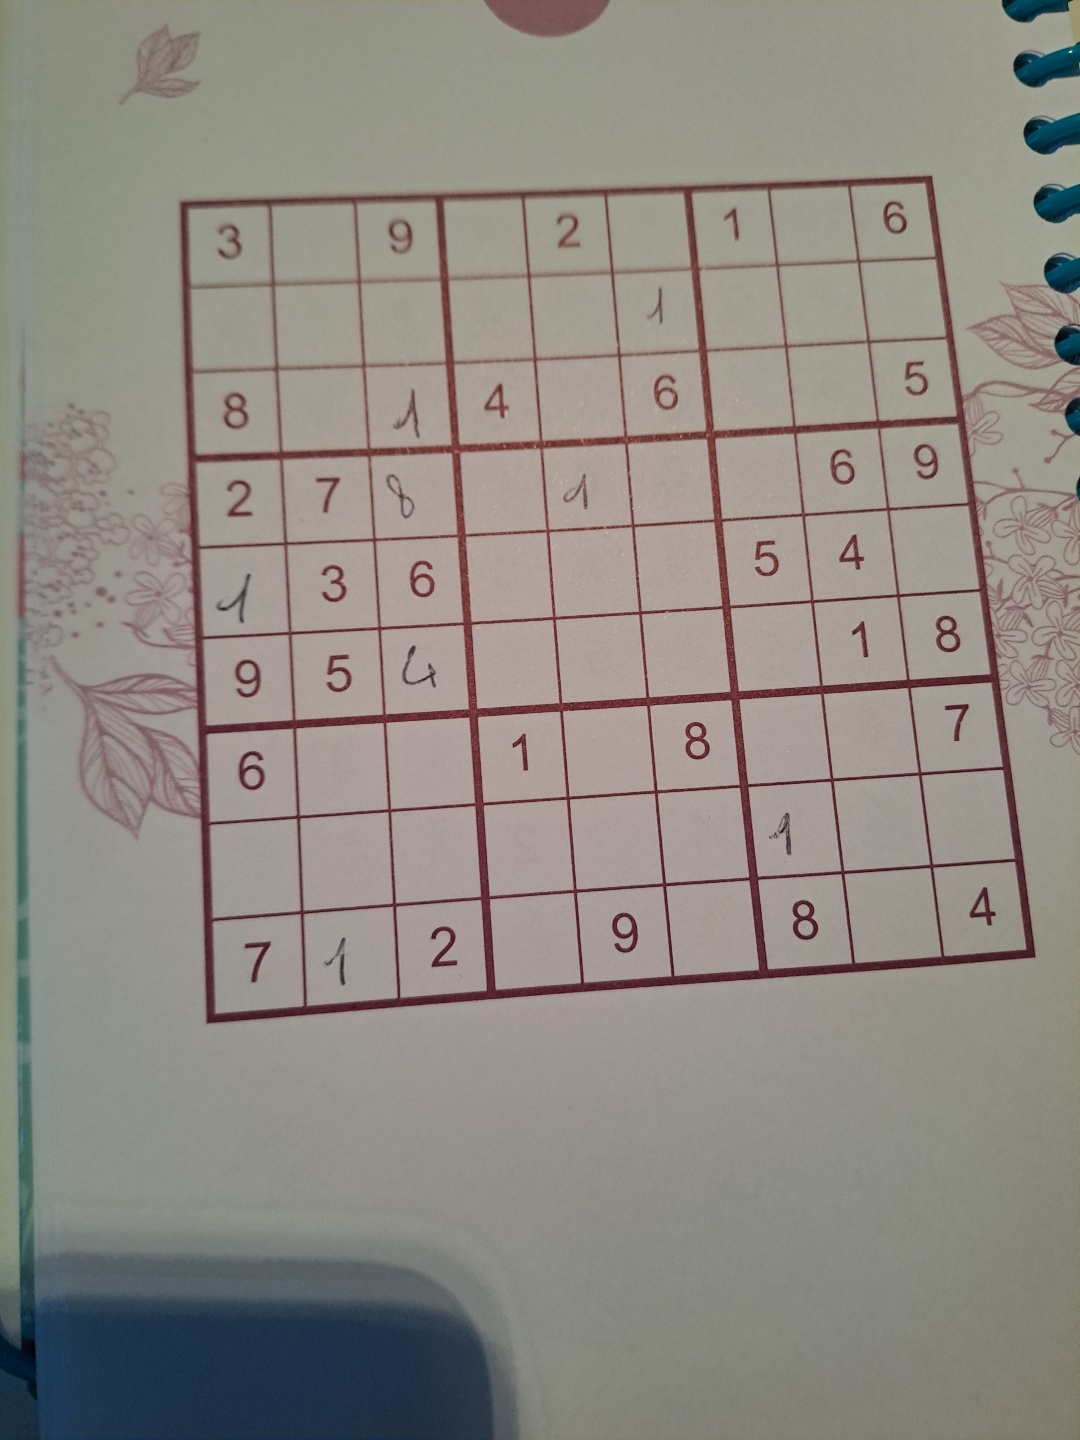 3 9 2 1 6
1
8 1 4 6 5
2 7 8 1 6 9
1 3 6 5 4
9 5 4 1 8
6 1 8 7
1
7 1 2 9 8 4